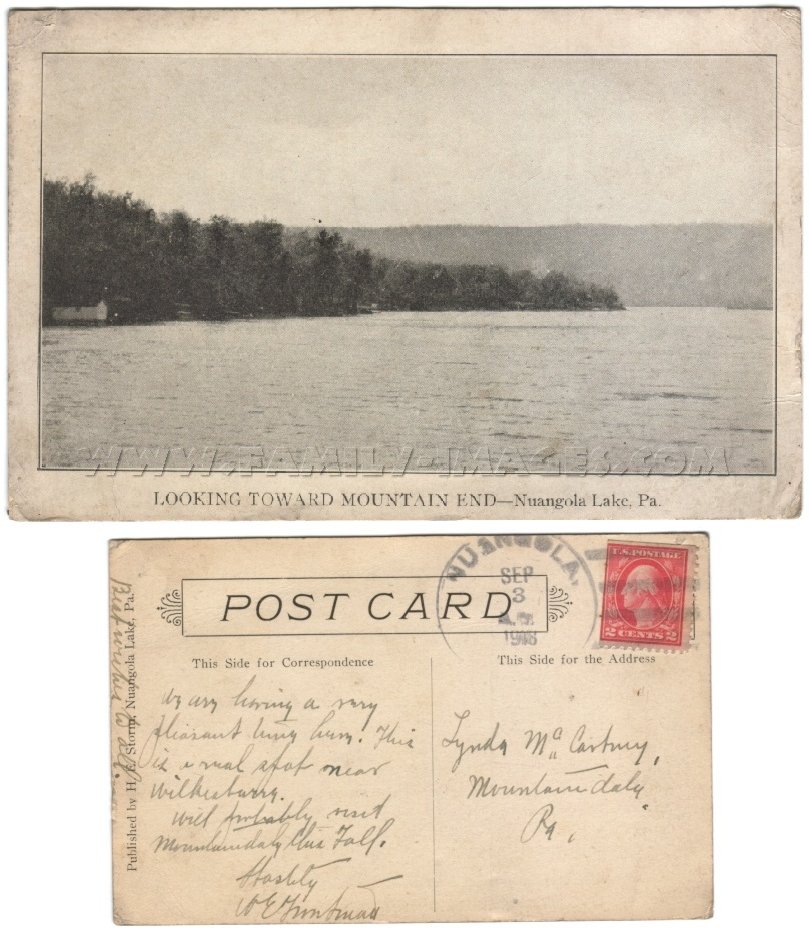 WWW.FAMILY-IMAGES.COM
LOOKING TOWARD MOUNTAIN END—Nuangola Lake, Pa.
POST CARD
NUANGOLA,
SEP
3
1918
U.S. POSTAGE
2 CENTS 2
This Side for Correspondence
This Side for the Address
We are having a very
pleasant time here. This
is a rural spot near
Wilkesbarry.
Will probably visit
Mountaindale this Fall.
Hastily
W E
Lynda McCartney,
Mountaindale
Pa,
Published by H. E. Storm, Nuangola Lake, Pa.
Best wishes to all